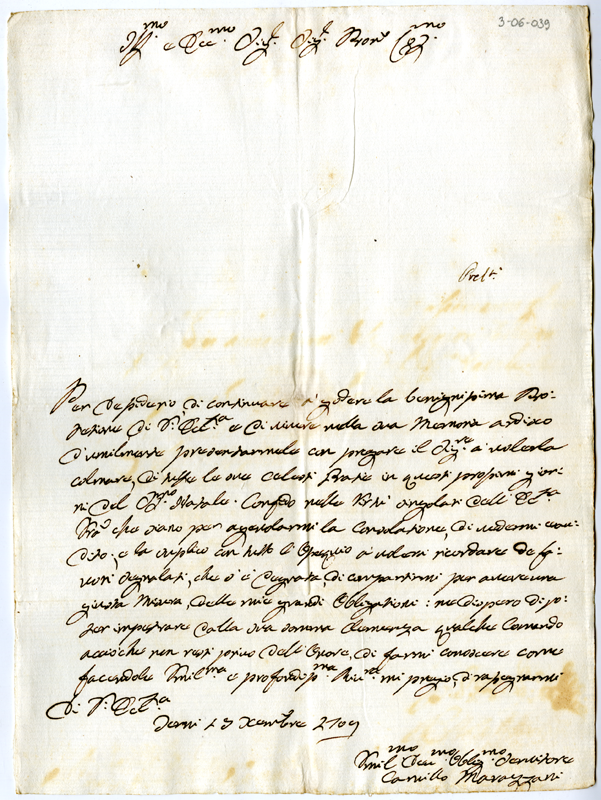 3-06-039
Ill.mo e Ecc.mo Sig.r Sig.r Pron.e Col.mo
Per desiderio, di continuare à godere la benignissima Pro-
tetione di V.ra Ecc.za e di vivere nella sua Memoria ardisco
humilmente presentarmele con pregare il Sig.re à volerla
colmare, di tutte le sue celesti Gratie in questi prossimi gior-
ni del S.mo Natale. Confido nelle Virtù singolari dell' Ecc.za
V.ra che siano per agevolarmi la Consolatione, di vedermi esau-
dito, e la supplico con tutto l'Ossequio à volersi ricordare de fa-
vori segnalati, che s'è degnata, di compartirmi per avere una
giusta Misura, delle mie grandi Obligationi: ne dispero di po-
ter impetrare dalla sua somma Clemenza qualche Comando
acciò che non resti privo dell' Onore, di farmi conoscere come
facendole Umil.ma e profondiss.ma Riv.za mi pregio, di rassegnarmi
Di V. Ecc.za
Umil.mo Dev.mo Oblig.mo Servitore
Camillo Marazzani